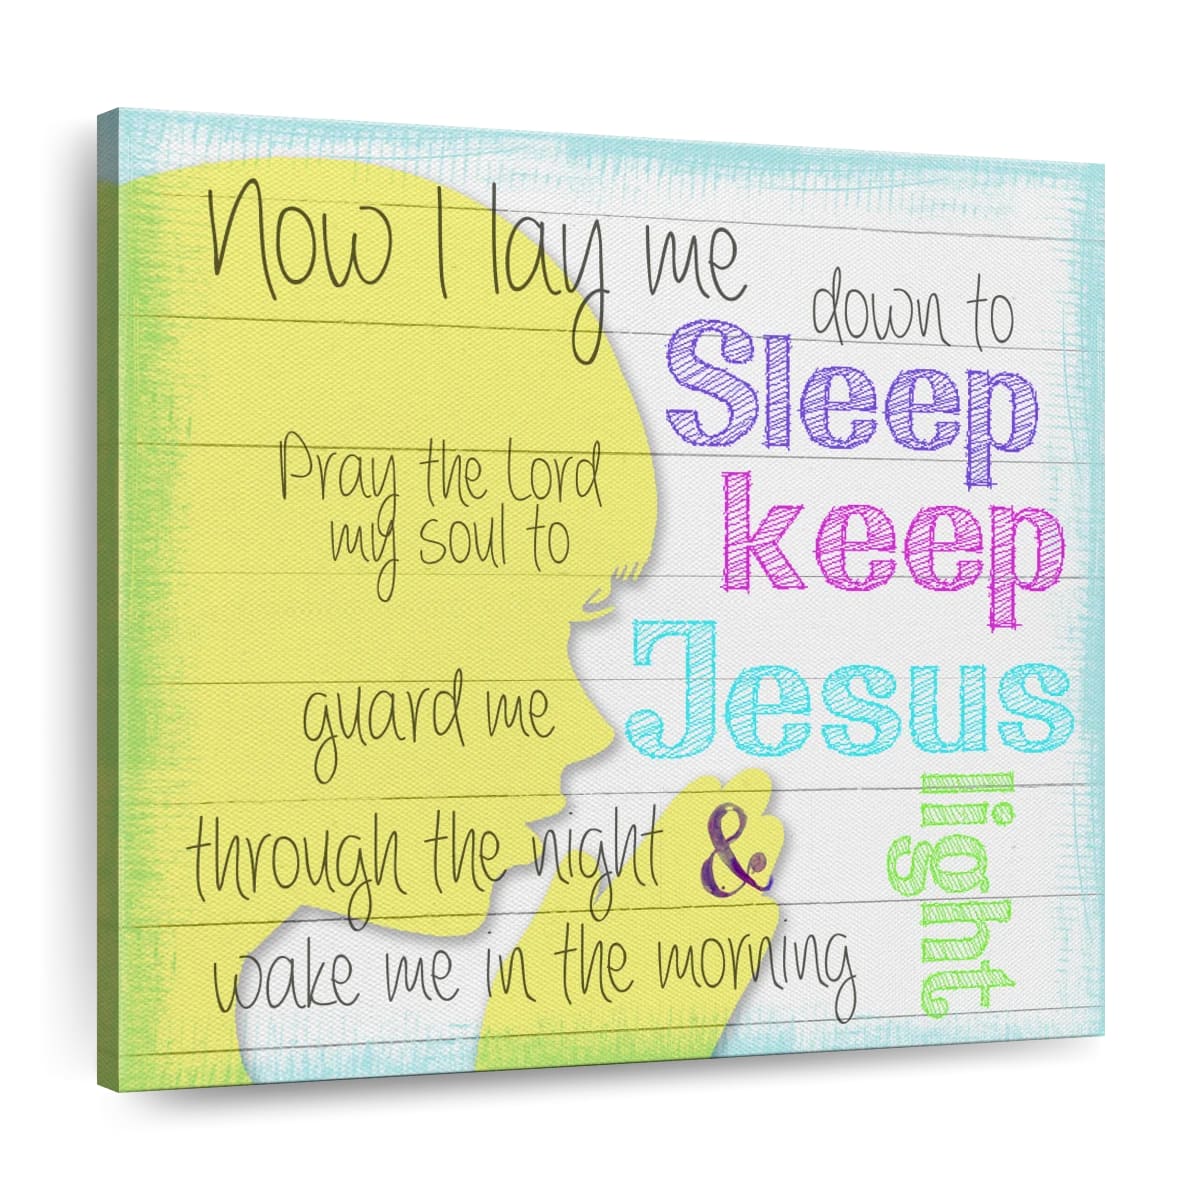 Now I lay me
down to
Sleep
Pray the Lord
my soul to
keep
guard me
Jesus
through the night &
wake me in the morning
light